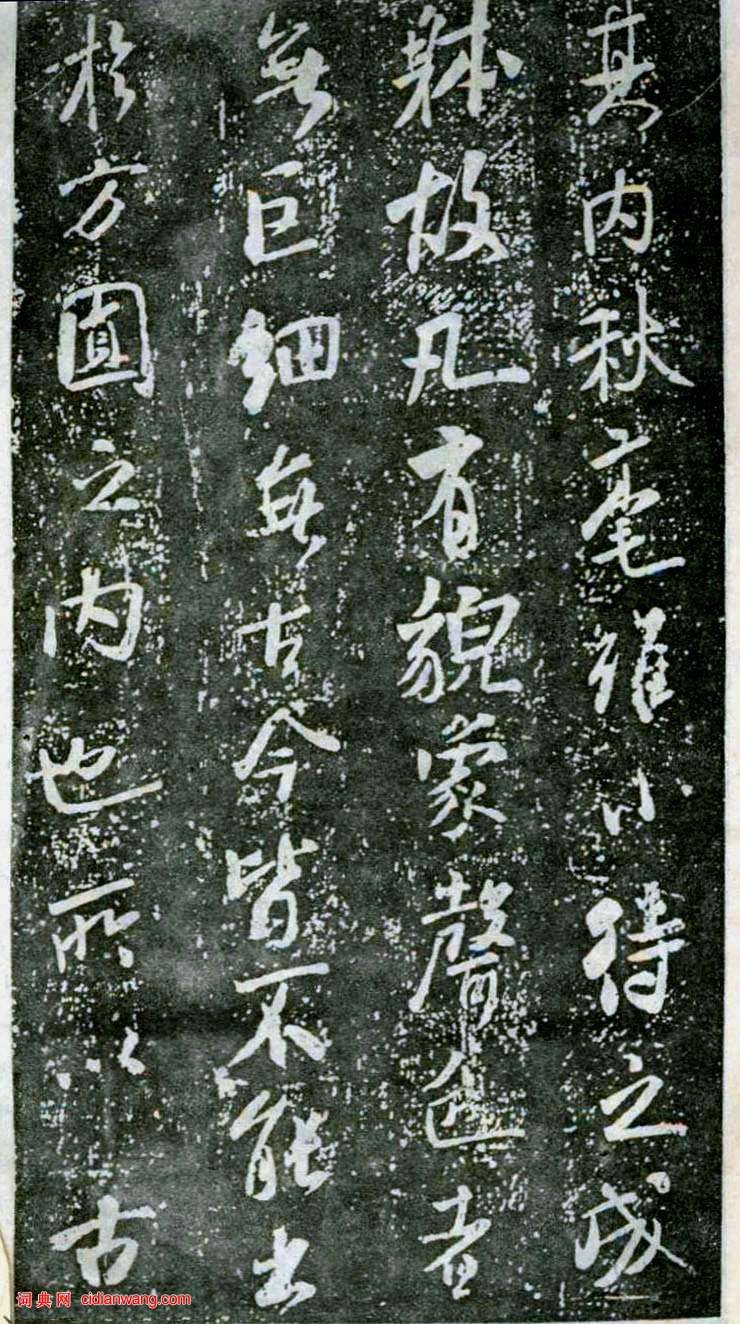 其内秋毫雖小待之成
躰故凡有貌象聲色者
無巨細無古今皆不能出
於方圓之内也所以古
词典网 cidianwang.com